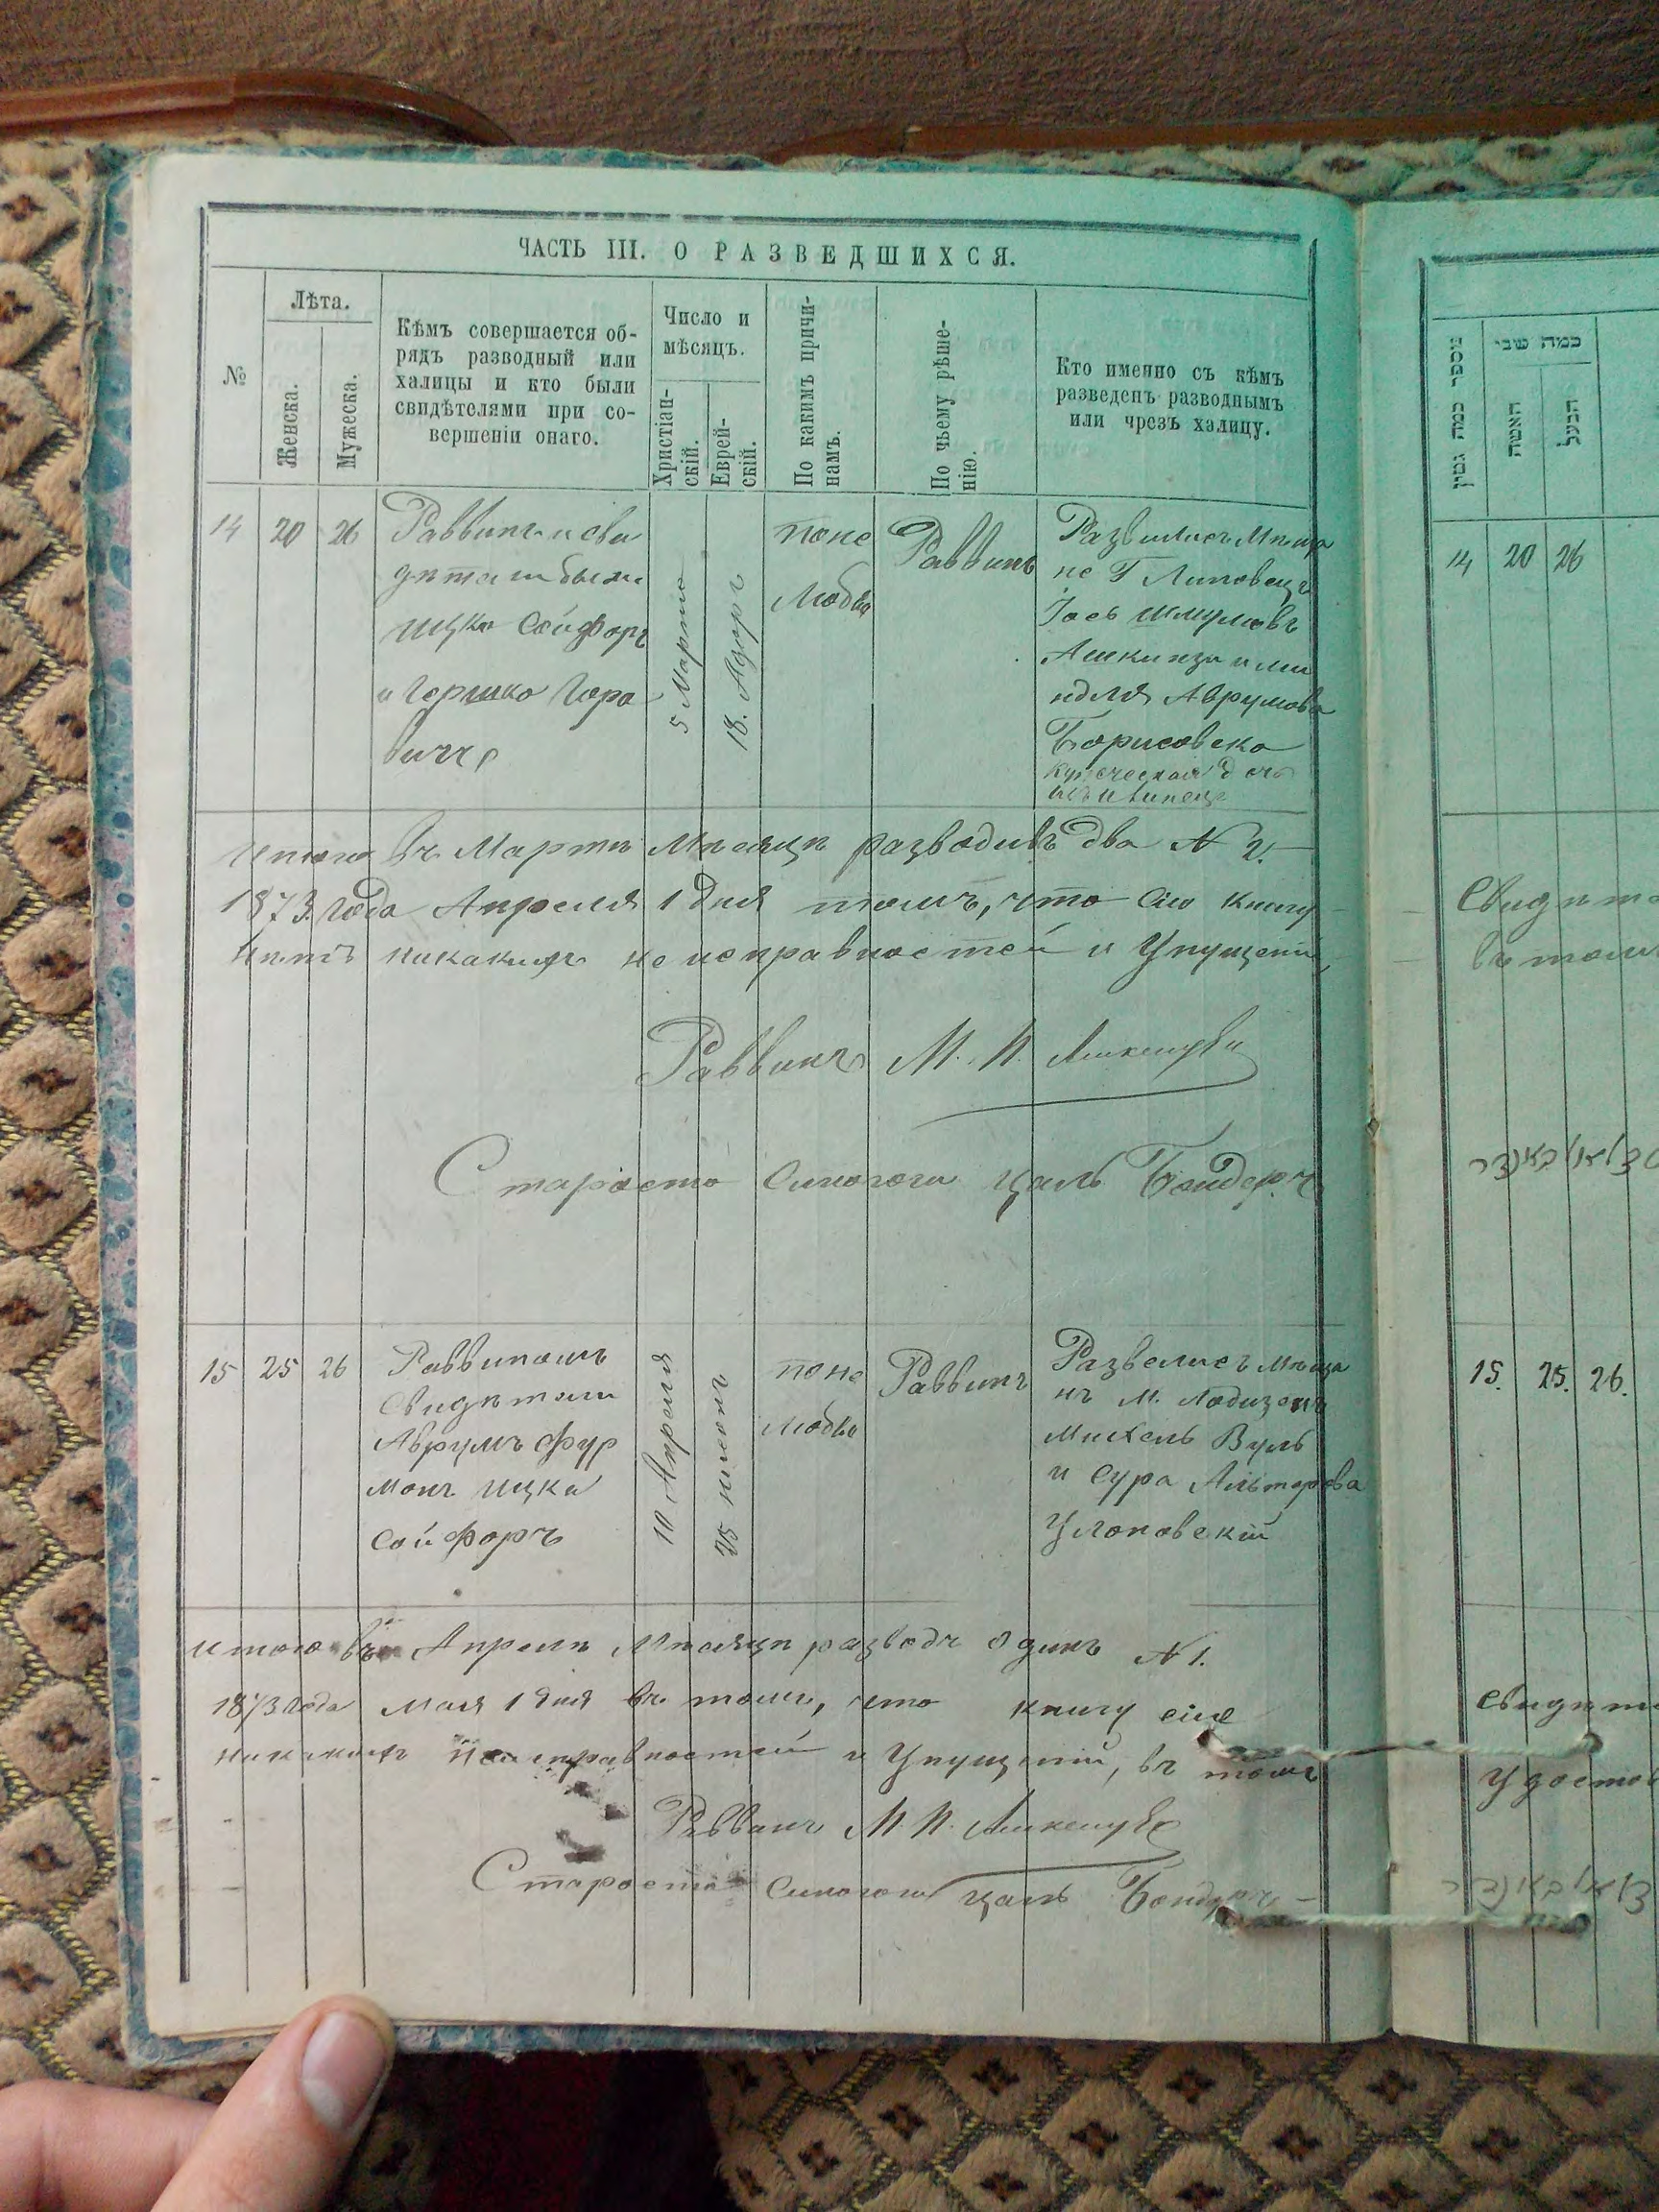 ЧАСТЬ III. О РАЗВЕДШИХСЯ.
№
Лѣта.
Женска.
Мужеска.
Кѣмъ совершается об-
рядъ разводный или
халицы и кто были
свидѣтелями при со-
вершеніи онаго.
Число и
мѣсяцъ.
Христіан-
скій.
Еврей-
скій.
По какимъ причи-
намъ.
По чьему рѣше-
нію.
Кто именно съ кѣмъ
разведенъ разводнымъ
или чрезъ халицу.
14
20
26
Раввинъ и сви
дѣтели были
Ицко Сойферъ
и Гершко Гора
вичъ
5 Марта
18. Адаръ
по не
любви
Раввинъ
Развилисъ Мѣща
не Г Липовецъ
Іось Шмулювъ
Ашкинзи и Ми
ндля Аврумова
Борисовска
купеческая дочь
итого въ Мартѣ Мѣсяцѣ разводивъ два № 2.
1873 Года Апреля 1 дня томъ, что сію книгу
нѣтъ никакихъ не исправностей и Упущеній,
Раввинъ М. И.
Староста Синогоги Цаль Бондеръ
15
25
26
Раввиномъ
Свидѣтели
Аврумъ Фур
манъ Ицка
Сойферъ
10 Апреля
25 нисонъ
по не
любви
Раввинъ
Развелисъ Мѣща
нъ М.
Михель Вуль
и Сура Альтерова
итого въ Апрелѣ Мѣсяцѣ разводъ одинъ № 1.
1873 Года Мая 1 дня въ томъ, что книгу сіе
никакихъ Неисправностей и Упущеній, въ томъ
Раввинъ М. И.
Староста Синогоги Цаль Бондеръ
מספר כמה גטין
כמה שני
האשה
הבעל
14
20
26
Свидѣте
въ томъ
15.
25.
26.
свидѣте
Удостов